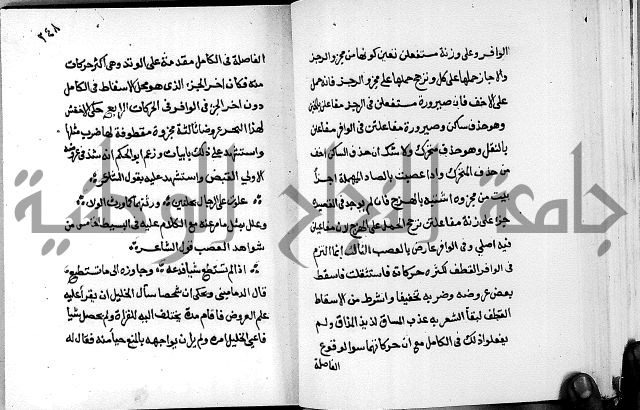 الوافر وعلى وزنة مستفعلن تعين كونها من مجزو الرجز
والا جاز حملها على كل وترجح حملها على مجزو الرجز فانه حمل
على الاخف فان صيرورة مستفعلن في الرجز مفاعلن
وهو حذف ساكن وصيرورة مفاعلتن في الوافر مفاعلن
بالنقل وهو حذف متحرك ولا شك ان حذف الساكن اخف
من حذف المتحرك واذا عصبت بالصاد المهملة اجزا
بيت من مجزوه اشتبه بالهزج فان لم يوجد في القصيدة
جزا على زنة مفاعلتن ترجح الحمل على الهزج لان مفاعيلن
فيه اصلي وفي الوافر عارض بالعصب الثالث انما التزم
في الوافر القطف لكثرة حركاته فاستثقلت فاسقط
بعض عروضه وضربه تخفيفا واشترط من الاسقاط
القطف ليبقا الشعر به عذب المساق لذيذ المذاق ولم
يفعلوا ذلك في الكامل مع ان حركاتهما سوا لوقوع
الفاصلة
٢٤٨
الفاصلة في الكامل مقدمة على الوتد وهي اكثر حركات
منه فكان اخر الجز الذي هو محل الاسقاط في الكامل
دون اخر الجز في الوافر في الحركات الرابع حكى الاخفش
لهذا البحر عروضا ثالثة مجزوة مقطوفة لها ضرب مثلها
واستشهد على ذلك بابيات وزعم ابو الحكم انه شذ في
الاولى القبض واستشهد عليه بقول الشاعر
علون على الجبال
وعلل بمثل ما مر عنه مع الكلام عليه في البسيط الخامس من
شواهد العصب قول الشاعر
اذا لم تستطع شيا فدعه وجاوزه الى ما تستطيع
قال الدماميني ويحكى ان شخصا سأل الخليل ان يقرا عليه
علم العروض فاقام مدة يختلف اليه للقراة ولم يحصل شيا
فاعيى الخليل امره ولم ير ان يواجهه بالمنع حيا منه فقال له
جامعة النجاح الوطنية